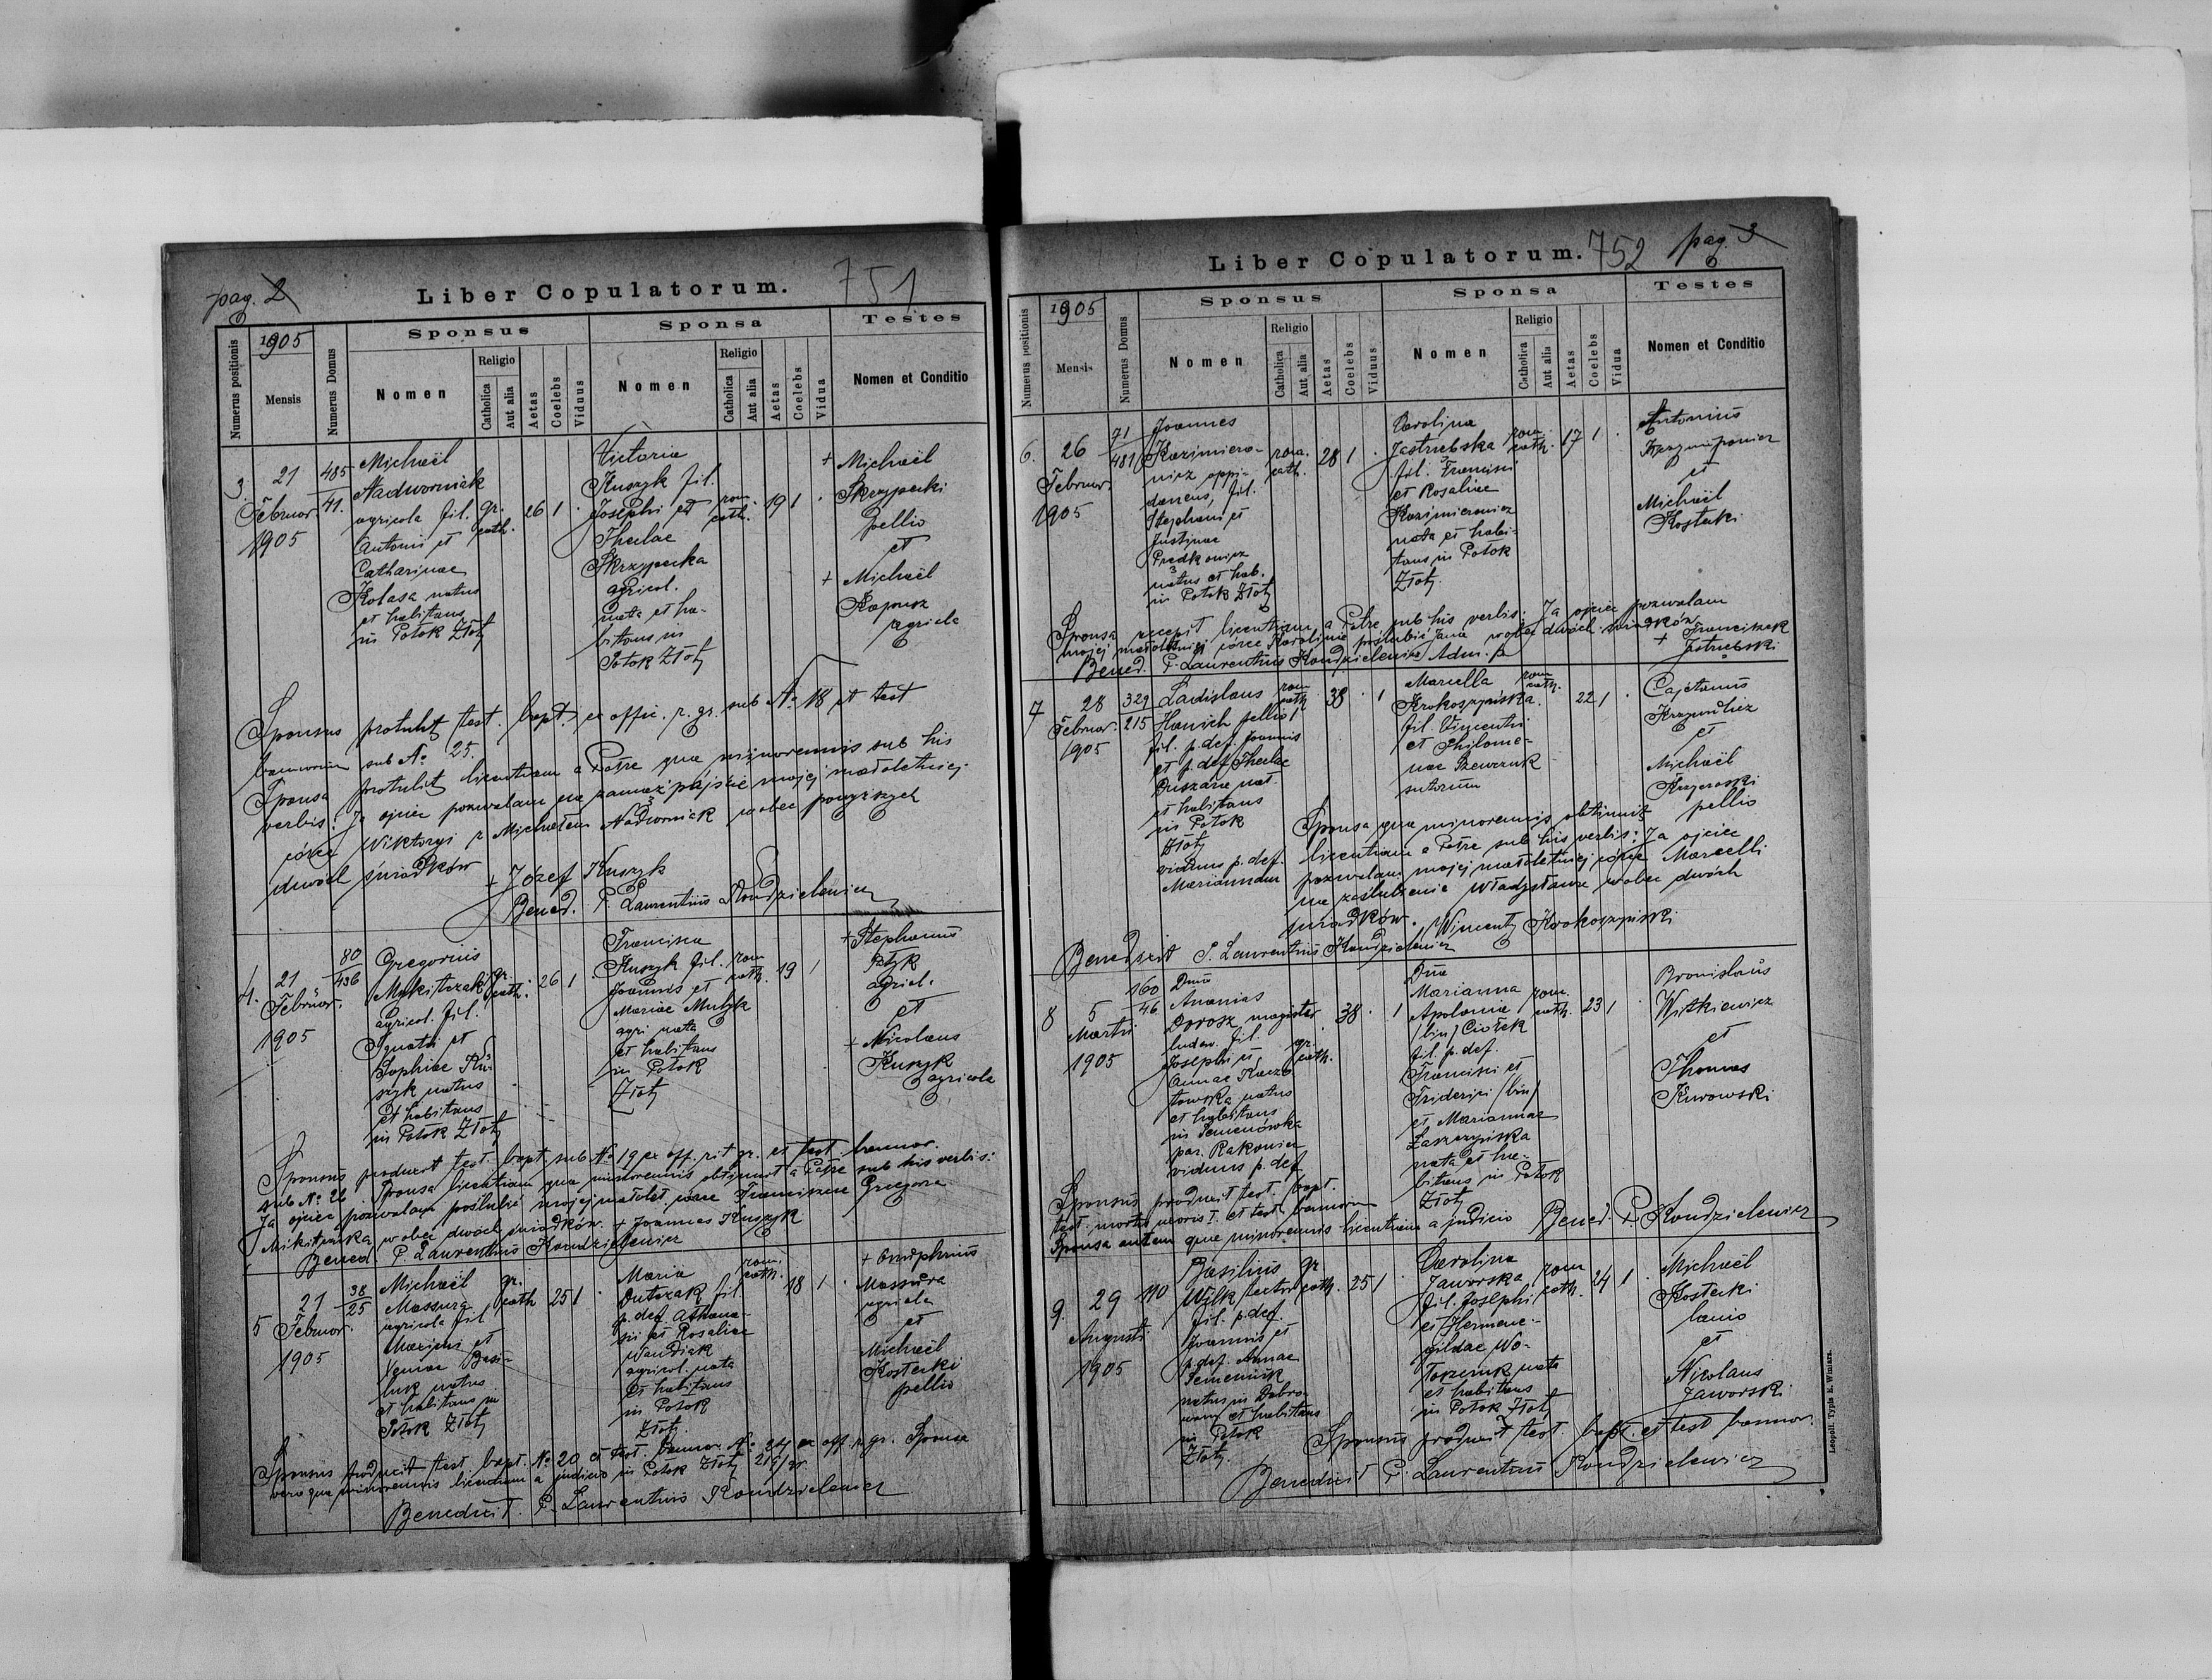 pag. 2
Liber Copulatorum.
751
Numerus positionis
1905
Mensis
Numerus Domus
Sponsus
Nomen
Religio
Catholica
Aut alia
Aetas
Coelebs
Viduus
Sponsa
Nomen
Religio
Catholica
Aut alia
Aetas
Coelebs
Vidua
Testes
Nomen et Conditio
3.
21
Februar.
1905
485
41.
Michaël
Nadworniak
agricola fil.
Antonii et
Catharinae
Kolasa natus
et habitans
in Potok Złoty
gr.
cath.
26 1 .
Victoria
Kuszyk fil.
Josephi et
Theclae
Skrzypecka
agricol.
nata et ha-
bitans in
Potok Złoty
rom.
cath.
19 1 .
+ Michaël
Skrzypecki
pellio
et
+ Michaël
Kapusz
agricola
Sponsus protulit test. bapt. ex offic. r. gr. sub No 18 et test
bannorum sub No 25.
Sponsa protulit licentiam a Patre qua minorennis sub his
verbis: Ja ojciec pozwalam na zamąż pójście mojej małoletniej
córce Wiktoryi z Michałem Nadworniak wobec powyższych
dwóch świadków + Józef Kuszyk
Bened. P. Laurentius Kondzielewicz
4.
21
Februar.
1905
80
436
Gregorius
Mykitczak
agricol. fil.
Ignatii et
Sophiae Ku-
szyk natus
et habitans
in Potok Złoty
gr.
cath.
26 1
Francisca
Kuszyk fil.
Joannis et
Mariae Mulyk
agri nata
et habitans
in Potok
Złoty
rom
cath.
19 1
+ Stephanus
Petyk
agricl.
et
+ Nicolaus
Kuszyk
agricola
Sponsus produxit test. bapt. sub No 19 ex off. rit gr. et test. bannor.
sub No 26. Sponsa licentiam qua minorennis obtinuit a Patre sub his verbis:
Ja ojciec pozwalam poślubić mojej małolet. córce Franciszce Gregora
Mikitczaka wobec dwóch świadków. + Joannes Kuszyk
Bened. P. Laurentius Kondzielewicz
5
21
Februar.
1905
38
25
Michaël
Massura
agricola fil.
et
Xeniae Basi-
luk natus
et habitans in
Potok Złoty
gr.
cath
25 1 .
Maria
Dutczak fil.
p. def. Athana-
sii et Rosaliae
Wandiak
agricol. nata
et habitans
in Potok
Złoty.
rom.
cath.
18 1 .
+ Onuphrius
Massura
agricola
et
Michaël
Kostecki
pellio
Sponsus produxit test bapt. No 20 et test. bannor. No 24 ex off. r. gr. Sponsa
vero qua minorennis licentiam a judicio in Potok Złoty
Benedixit. P. Laurentius Kondzielewicz
Liber Copulatorum.
752
pag. 3
Numerus positionis
1905
Mensis
Numerus Domus
Sponsus
Nomen
Religio
Catholica
Aut alia
Aetas
Coelebs
Viduus
Sponsa
Nomen
Religio
Catholica
Aut alia
Aetas
Coelebs
Vidua
Testes
Nomen et Conditio
6.
26
Februar.
1905
71
481
Joannes
Kazimiero-
wicz oppi-
daneus, fil.
Stephani et
Justinae
Predkowicz
natus et hab.
in Potok Złoty
rom.
cath.
28 1 .
Carolina
Jastrzebska
fil. Francisci
et Rosaliae
Kazimierowicz
nata et habi-
tans in Potok
Złoty.
rom.
cath.
17 1 .
Antonius
et
Michaël
Kostecki
Sponsa recepit licentiam a Patre sub his verbis: Ja ojciec pozwalam
mojej małoletniej córce Karolinie poślubić Jana wobec dwóch świadków
+ Franciszek
Jastrzebski
Bened. P. Laurentius Kondzielewicz Adm. p
7
28
Februar.
1905
329
215
Ladislaus
Hanich pellio
fil. p. def. Joannis
et p. def. Theclae
Duszara nat.
et habitans
in Potok
Złoty
viduus p. def.
Mariannam
rom
cath
38 . 1
Marcella
Krokoszyńska
fil. Vincentii
et Philome-
nae Szewczuk
sutorum
rom
cath.
22 1 .
Cajetanus
et
Michaël
pellio
Sponsa qua minorennis obtinuit
licentiam a Patre sub his verbis: Ja ojciec
pozwalam mojej małoletniej córce Marcelli
na zaślubienie Władysława wobec dwóch
świadków. Wincenty Krokoszyński
Benedixit P. Laurentius Kondzielewicz
8
5
Martii
1905
160
46.
Dnus
Ananias
Dorosz magister
ludow. fil.
Josephi et
Annae Kacz-
towska natus
et habitans
in Semenówka
par. Rakowiec
viduus p. def
gr.
cath.
38 . 1
Dna
Marianna
Apolonia
/bin/ Ciołek
fil. p. def.
Francisci et
Friderici /bin/
et Mariannae
Zaszczyńska
nata et ha-
bitans in Potok
Złoty
rom.
cath.
23 1
Bronislaus
Witkiewicz
et
Thomas
Kurowski
Sponsus produxit test. bapt.
test. mortis uxoris I. et test bannorum
Sponsa autem qua minorennis licentiam a judicio Bened. P. Kondzielewicz
9.
29
Augusti
1905
110
Basilius
Wilk
fil. p. def.
Joannis et
p. def. Annae
Semeniuk
natus in Dobro-
wody et habitans
in Potok
Złoty.
gr
cath.
25 1
Carolina
Jaworska
fil. Josephi
et Herme-
gildae Wo-
toszczuk nata
et habitans
in Potok Złoty
rom
cath.
24 1 .
Michaël
Kostecki
lanio
et
Nicolaus
Jaworski
Sponsus produxit test. bapt. et test bannor.
Benedixit P. Laurentius Kondzielewicz
Leopoli. Typis E. Winiarz.